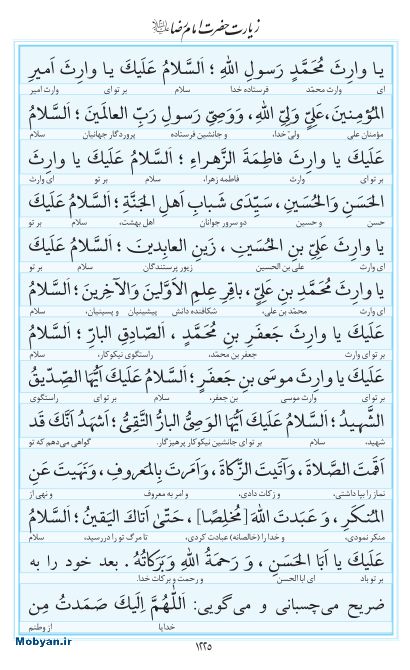 زیارت حضرت امام رضا
یا وارِثَ مُحَمَّدٍ رَسولِ اللهِ ؛ اَلسَّلامُ عَلَیكَ یا وارِثَ اَمیرِ
ای وارث محمّد فرستاده خدا سلام بر تو ای وارث امیر
المُؤمِنینَ،عَلِیٍّ وَلِیِّ اللهِ، وَوَصِیِّ رَسولِ رَبِّ العالَمینَ ؛ اَلسَّلامُ
مؤمنان علی ولیّ خدا، و جانشین فرستاده پروردگار جهانیان سلام
عَلَیكَ یا وارِثَ فاطِمَةَ الزَّهراءِ ؛ اَلسَّلامُ عَلَیكَ یا وارِثَ
بر تو ای وارث فاطمه زهرا، سلام بر تو ای وارث
الحَسَنِ وَالحُسَینِ ، سَیِّدَی شَبابِ اَهلِ الجَنَّةِ ؛ اَلسَّلامُ عَلَیكَ
حسن و حسین دو سرور جوانان اهل بهشت، سلام بر تو
یا وارِثَ عَلِیِّ بنِ الحُسَینِ ، زَینِ العابِدینَ ؛ اَلسَّلامُ عَلَیكَ
ای وارث علی بن الحسین زیور پرستندگان سلام بر تو
یا وارِثَ مُحَمَّدِ بنِ عَلِیٍّ، باقِرِ عِلمِ الاَوَّلینَ وَالآخِرینَ ؛ اَلسَّلامُ
ای وارث محمّد بن علی، شکافنده دانش پیشینیان و پسینیان، سلام
عَلَیكَ یا وارِثَ جَعفَرِ بنِ مُحَمَّدٍ ، اَلصّادِقِ البارِّ ؛ اَلسَّلامُ
بر تو ای وارث جعفر بن محمّد، راستگوی نیکوکار، سلام
عَلَیكَ یا وارِثَ موسَی بنِ جَعفَرٍ ؛ اَلسَّلامُ عَلَیكَ اَیُّهَا الصِّدّیقُ
بر تو ای وارث موسی بن جعفر، سلام بر تو ای راستگوی
الشَّهیدُ ؛ اَلسَّلامُ عَلَیكَ اَیُّهَا الوَصِیُّ البارُّ التَّقِیُّ ؛ اَشهَدُ اَنَّكَ قَد
شهید، سلام بر تو ای جانشین نیکوکار پرهیزگار. گواهی می‌دهم که تو
اَقَمتَ الصَّلاةَ ، وَآتَیتَ الزَّكاةَ ، وَاَمَرتَ بِالمَعروفِ ، وَنَهَیتَ عَنِ
نماز را بپا داشتی، و زکات دادی، و امر به معروف و نهی از
المُنكَرِ ، وَ عَبَدتَ اللهَ [مُخلِصًا] ، حَتّی اَتاكَ الیَقینُ ؛ اَلسَّلامُ
منکر نمودی، و خدا را (خالصانه) عبادت کردی، تا مرگ تو را دررسید، سلام
عَلَیكَ یا اَبَا الحَسَنِ ، وَ رَحمَةُ اللهِ وَبَرَكاتُهُ . بعد خود را به
بر تو باد ای ابا الحسن و رحمت و برکات خدا.
ضریح می‌چسبانی و می‌گویی: اَللّهُمَّ اِلَیكَ صَمَدتُ مِن
خدایا از وطنم
۱۲۲۵
Mobyan.ir